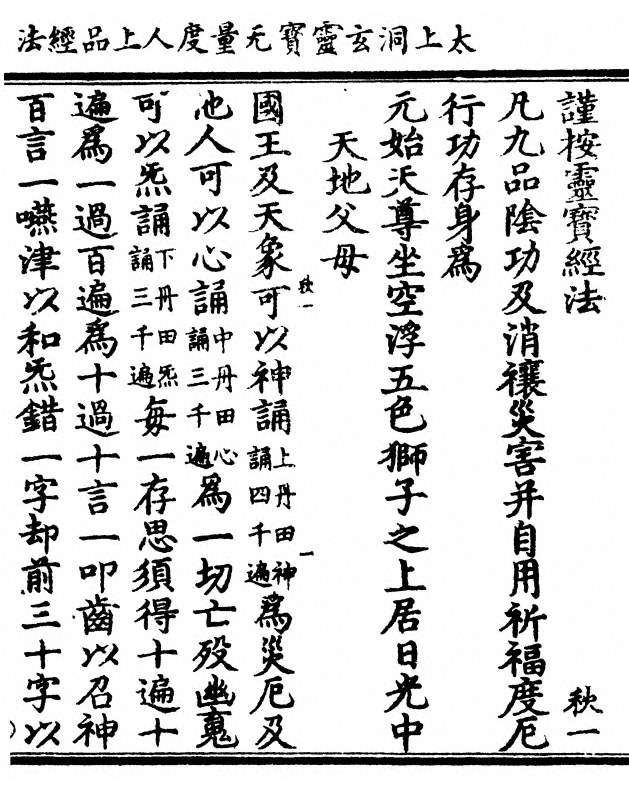 太上洞玄靈寶无量度人上品經法
謹按靈寶經法 秋一
凡九品陰功及消禳災害并自用祈福度厄
行功存身爲
元始天尊坐空浮五色獅子之上居日光中
天地父母
國王及天象可以神誦上丹田神誦四千遍爲災厄及
他人可以心誦中丹田心誦三千遍爲一切亡歿幽䰟
可以炁誦下丹田炁誦三千遍每一存思須得十遍十
遍爲一過百遍爲十過十言一叩齒以召神
百言一嚥津以和炁錯一字却前三十字以
秋一
一